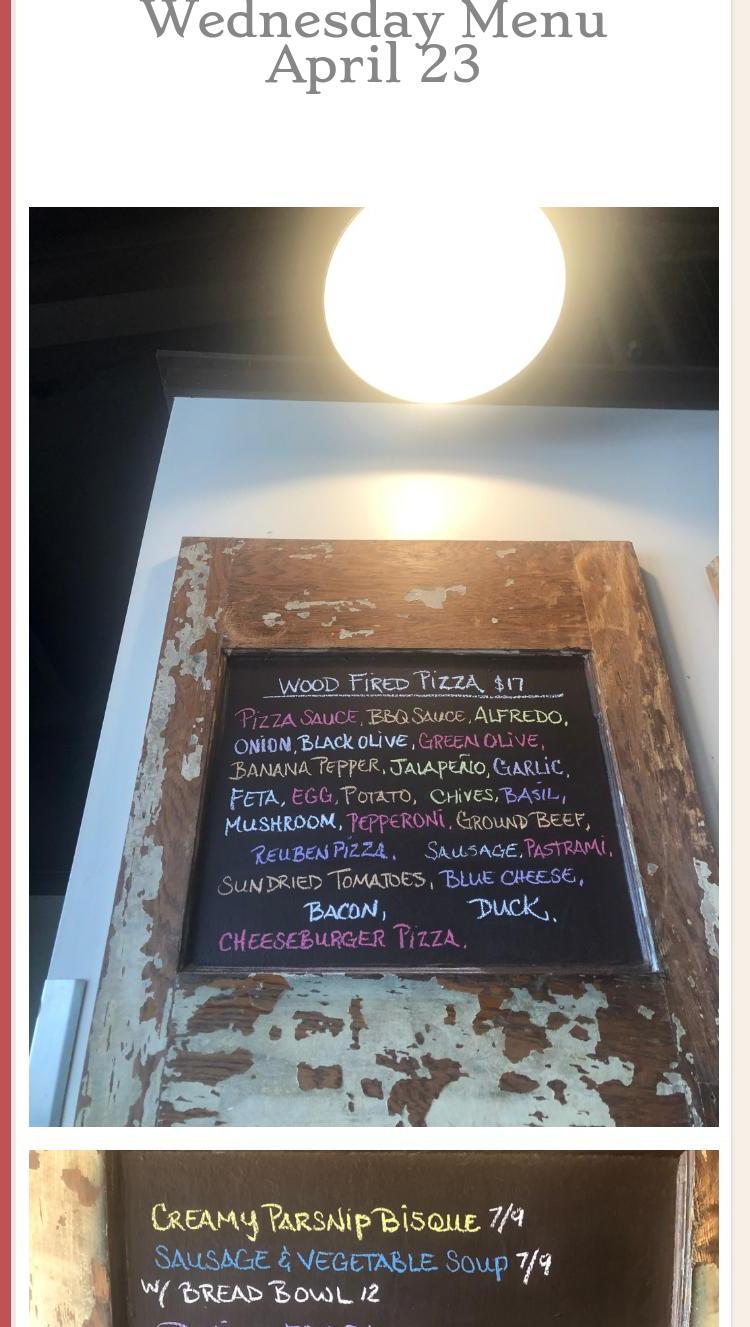 Wednesday Menu
April 23
WOOD FIRED PIZZA $17
PIZZA SAUCE, BBQ SAUCE, ALFREDO,
ONION, BLACK OLIVE, GREEN OLIVE,
BANANA PEPPER, JALAPEÑO, GARLIC,
FETA, EGG, POTATO, CHIVES, BASIL,
MUSHROOM, PEPPERONI, GROUND BEEF,
REUBEN PIZZA, SAUSAGE, PASTRAMI,
SUNDRIED TOMATOES, BLUE CHEESE,
BACON, DUCK,
CHEESEBURGER PIZZA,
CREAMY PARSNIP BISQUE 7/9
SAUSAGE & VEGETABLE SOUP 7/9
W/ BREAD BOWL 12